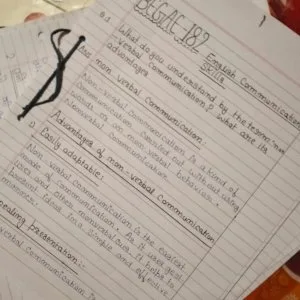 BEGAC182
English Communication
Skills
Q.1 What do you understand by the term "non
verbal communication? What are its
advantages
Ans non verbal Communication:
Non-verbal communication is a kind of
communication carried out without using
words or
Nonverbal communication behaviour.
Advantages of non-verbal Communication
1) Easily adaptable:
Non verbal communication is the easiest
mode of communication. As it uses
and other nonverbal cues. It helps to
present ideas in a simple and effective
presentation:
verbal communication